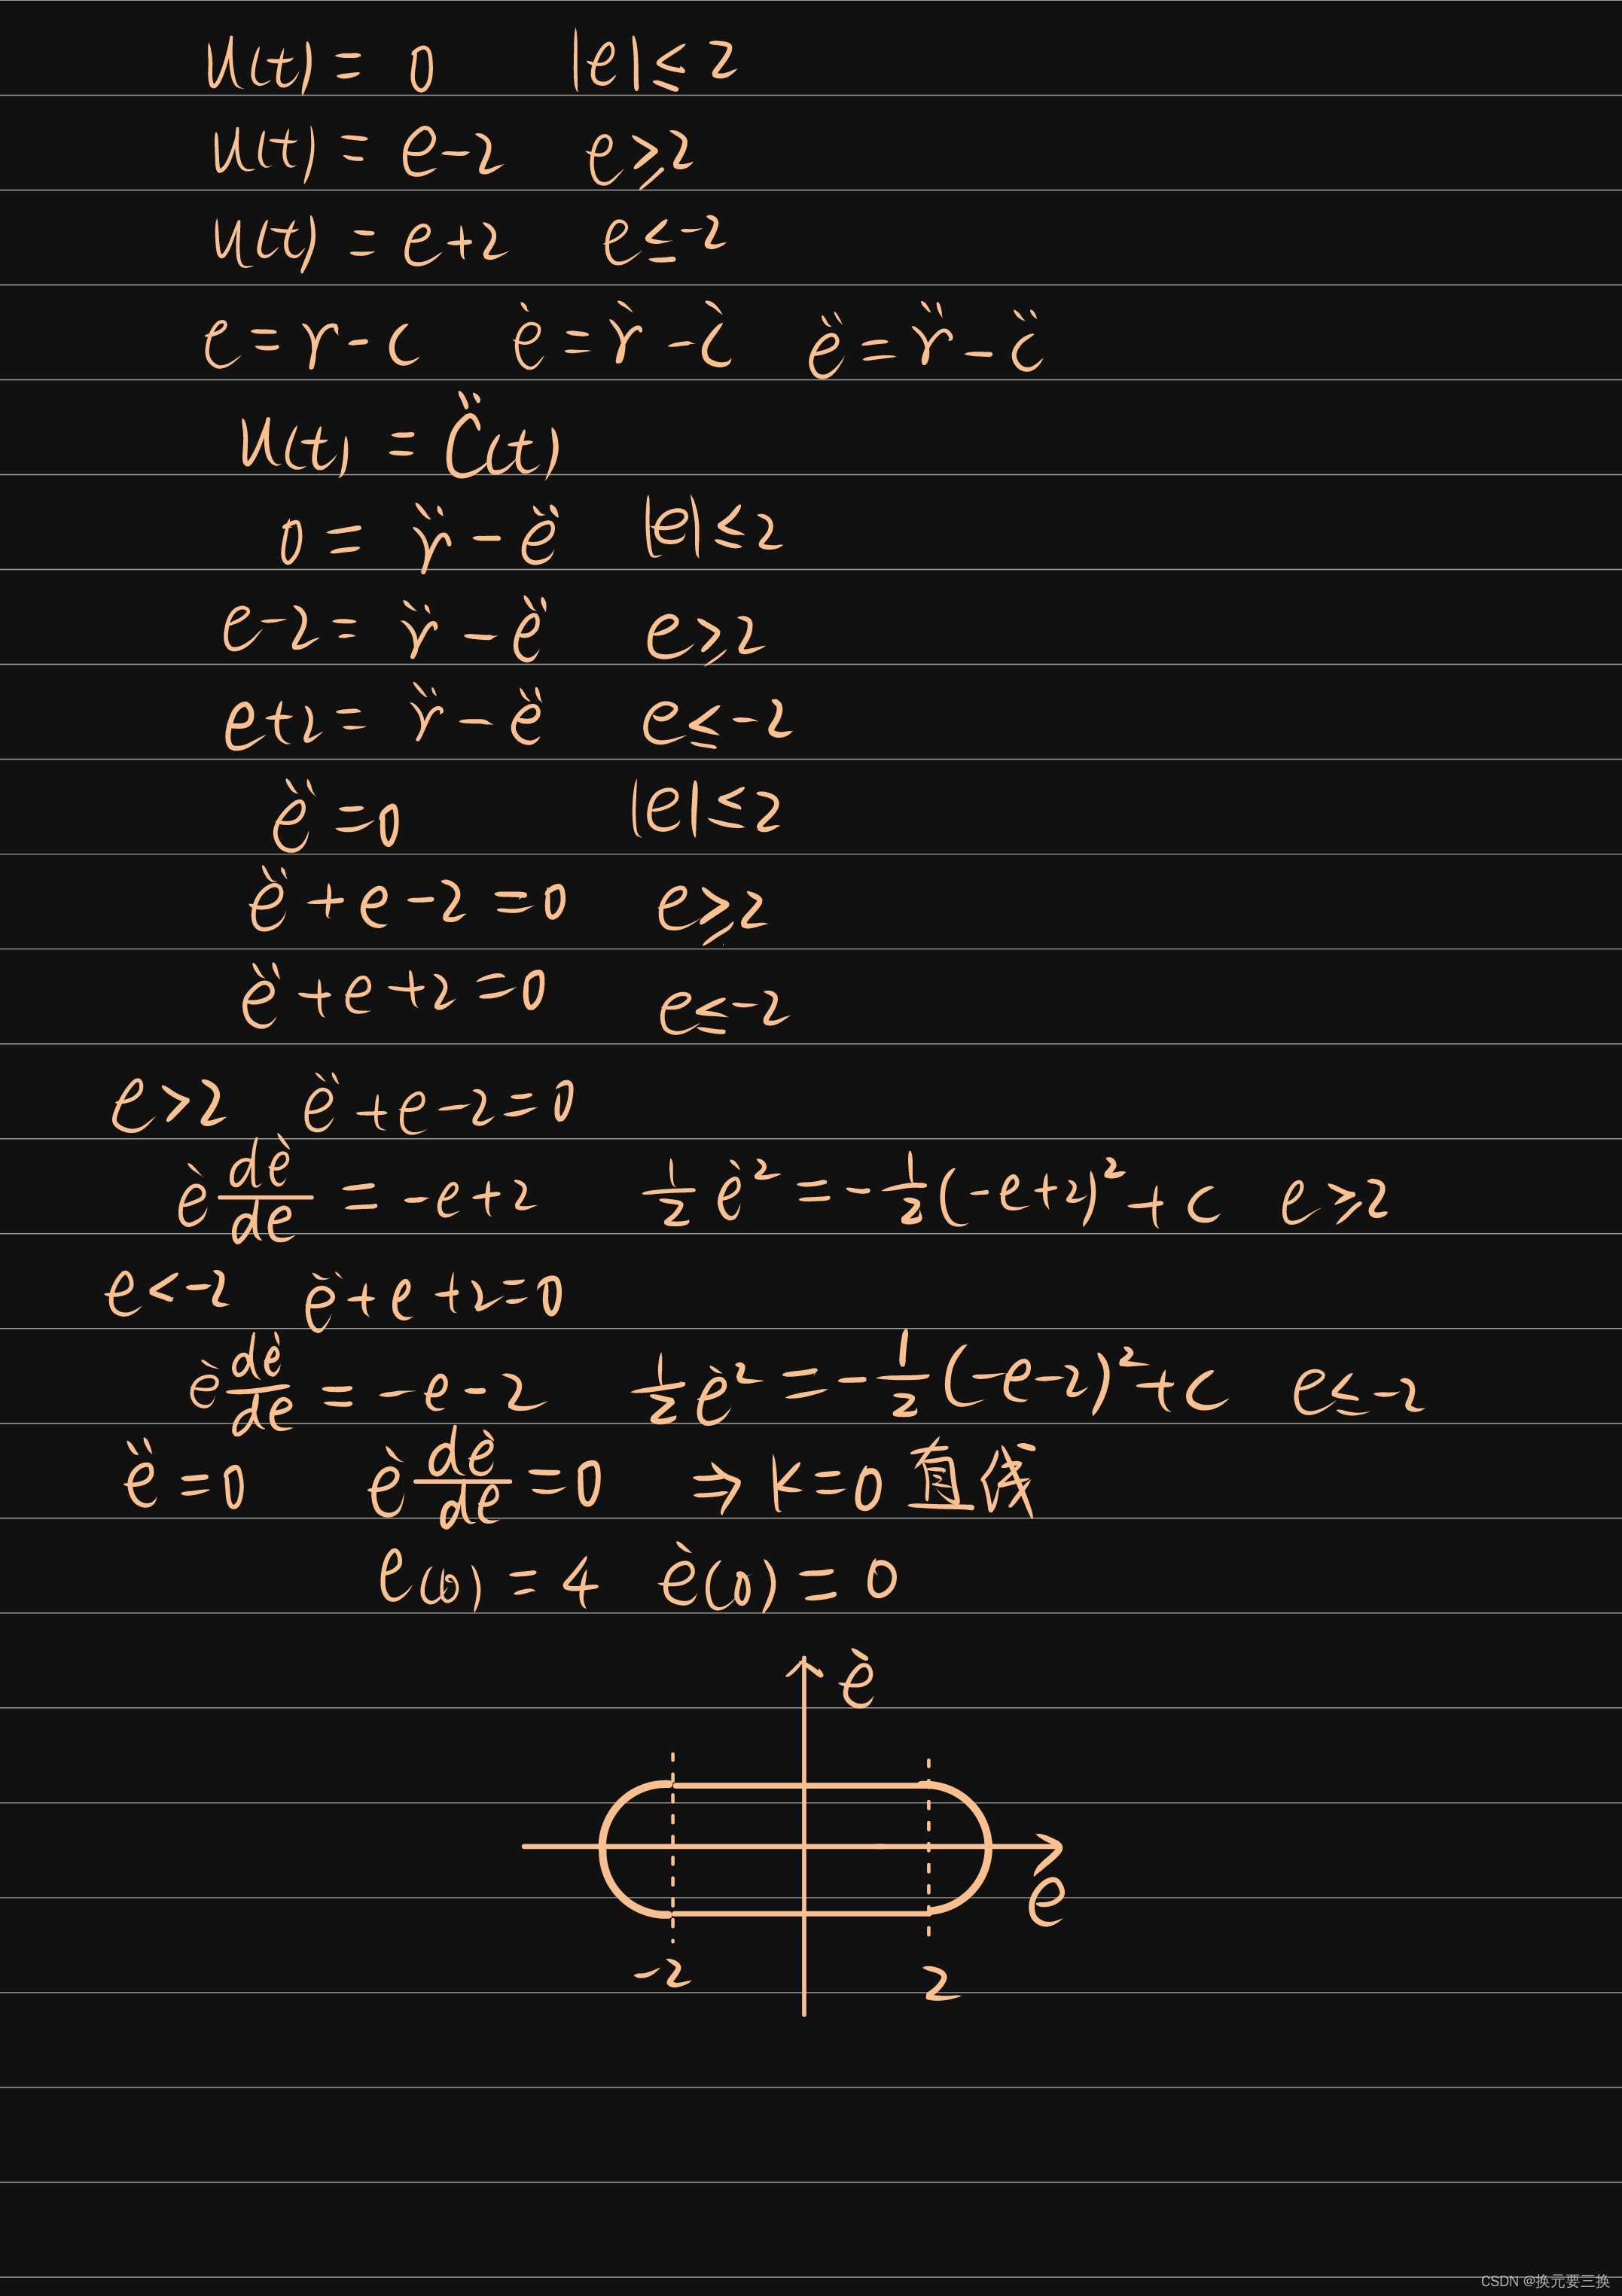 u(t) = 0 |e| ≤ 2
u(t) = e-2 e ≥ 2
u(t) = e+2 e ≤ -2
e = r - c ė = ṙ - ċ ë = r̈ - c̈
u(t) = c̈(t)
0 = r̈ - ë |e| ≤ 2
e-2 = r̈ - ë e ≥ 2
e+2 = r̈ - ë e ≤ -2
ë = 0 |e| ≤ 2
ë + e - 2 = 0 e ≥ 2
ë + e + 2 = 0 e ≤ -2
e > 2 ë + e - 2 = 0
ė dė/de = -e+2 1/2 ė² = -1/2 (-e+2)² + c e ≥ 2
e < -2 ë + e + 2 = 0
ė dė/de = -e-2 1/2 ė² = -1/2 (-e-2)² + c e ≤ -2
ë = 0 ė dė/de = 0 ⇒ k=0 直线
e(0) = 4 ė(0) = 0
ė
e
-2 2
CSDN @换元要三换